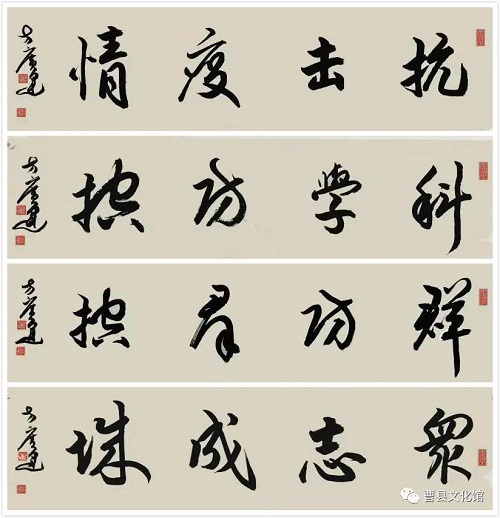 抗击疫情
科學防控
群防羣控
衆志成城
曹县文化馆